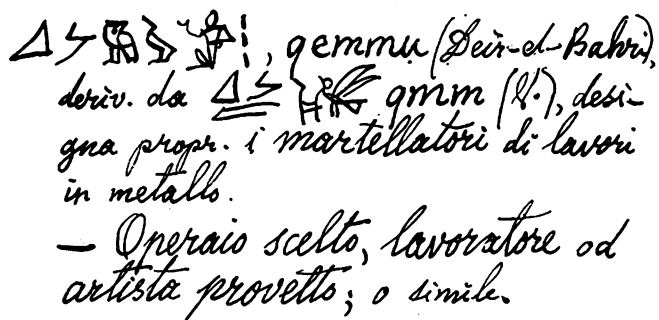 , qemmu (Deir-el-Bahri),
deriv. da qmm (V.), desi-
gna propr. i martellatori di lavori
in metallo.
— Operaio scelto, lavoratore od
artista provetto; o simile.